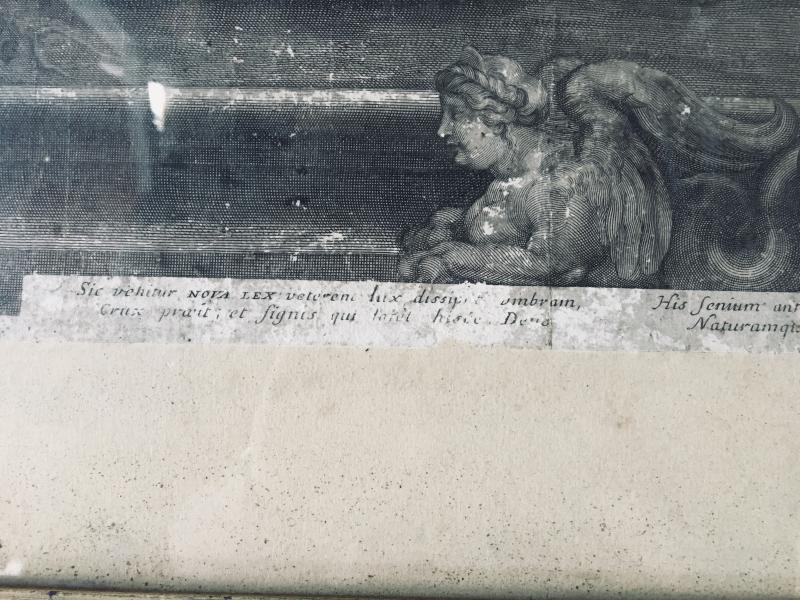 Sic vehitur NOVA LEX: veterem lux dissipat ombram,
Crux præit; et signis qui latet hisce Deus
His senium
Naturamque